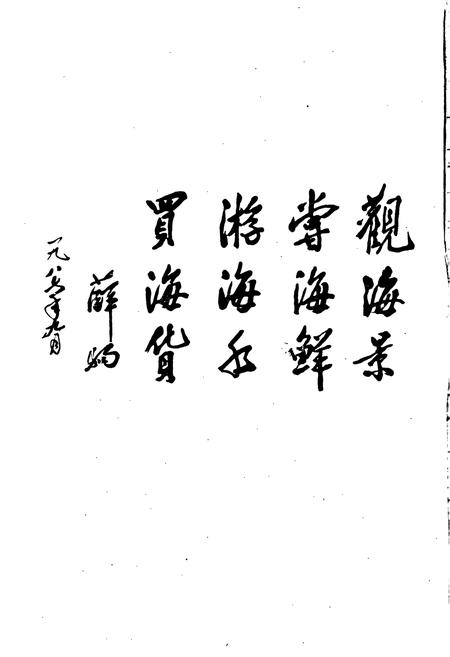 觀海景
嘗海鮮
游海水
買海貨
薛駒
一九八六年九月